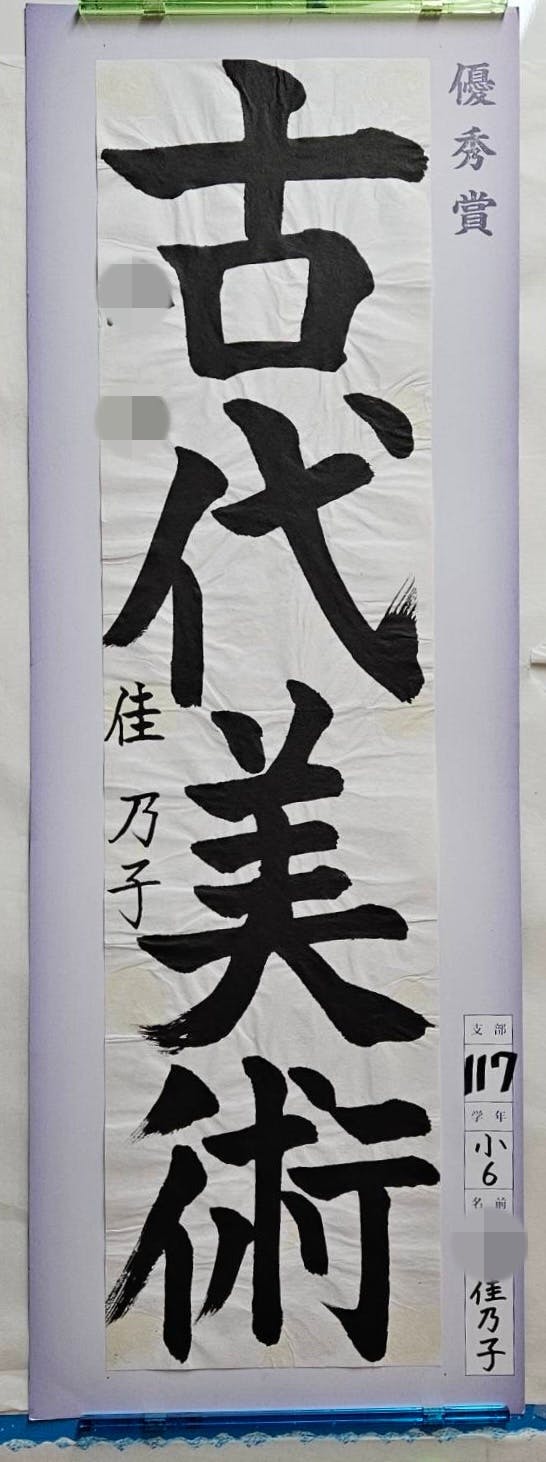 優秀賞
古代美術
佳乃子
支部
117
学年
小6
名前
佳乃子